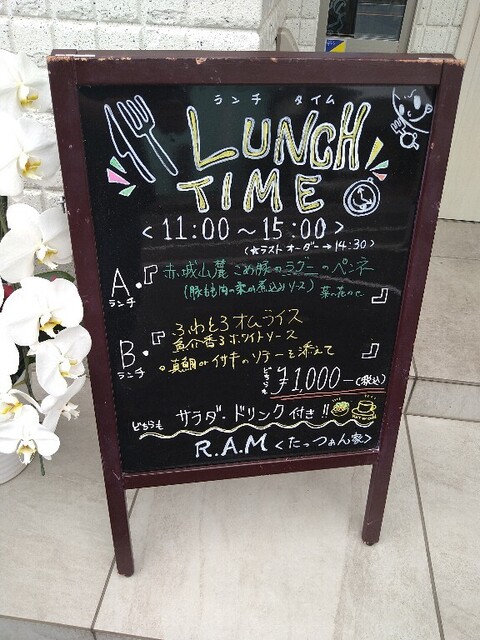 ランチ タイム
LUNCH
TIME
<11:00〜15:00>
(★ラストオーダー→14:30)
A.『赤城山麓こめ豚のラグーのペンネ
ランチ
(豚もも肉の柔らか煮込みソース) 菜の花のせ』
B.『ふわとろオムライス
ランチ
魚介香るホワイトソース
。真鯛orイサキのソテーを添えて』
どちらも ¥1,000-(税込)
どちらも サラダ・ドリンク付き!!
R.A.M<たっつぁん家>